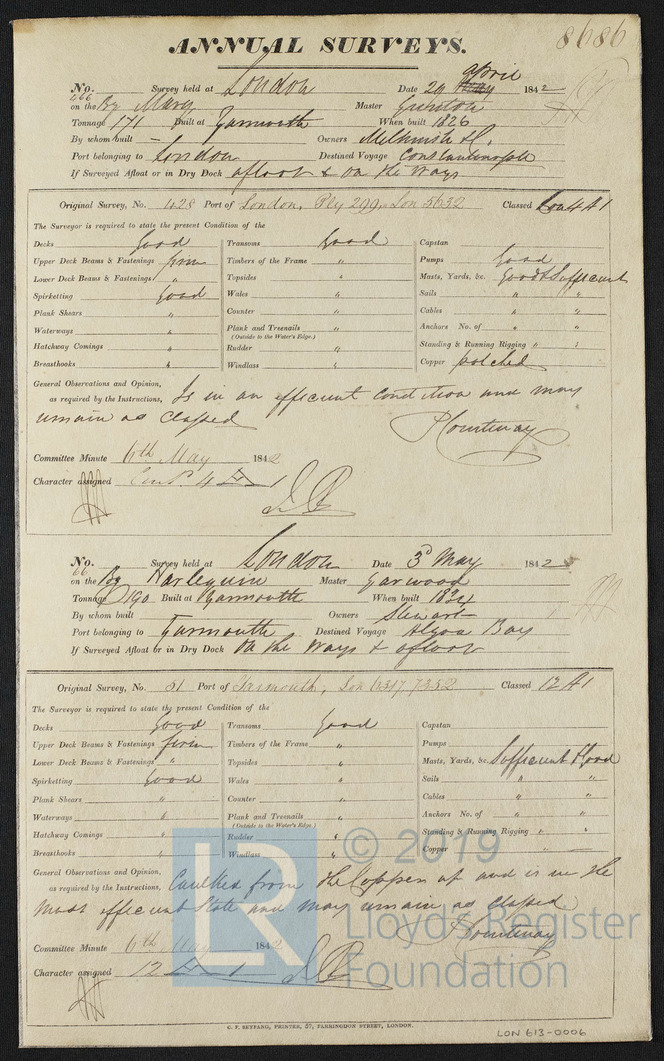 8686
ANNUAL SURVEYS.
No. Survey held at London Date 29 april May 1842
666 on the Bg Mary Master Gunston
Tonnage 171 Built at Yarmouth When built 1826
By whom built – Owners
Port belonging to London Destined Voyage Constantinople
If Surveyed Afloat or in Dry Dock afloat & on the ways
Original Survey, No. 428 Port of London, Ply 299, Lon 5632 Classed A1
The Surveyor is required to state the present Condition of the
Decks Good Transoms Good Capstan
Upper Deck Beams & Fastenings firm Timbers of the Frame " Pumps Good
Lower Deck Beams & Fastenings " Topsides " Masts, Yards, &c. Good & Sufficient
Spirketting Good Wales " Sails " "
Plank Shears " Counter " Cables " "
Waterways " Plank and Treenails " Anchors No. of " "
(Outside to the Water's Edge.)
Hatchway Comings " Rudder " Standing & Running Rigging " "
Breasthooks " Windlass " Copper patched
General Observations and Opinion, Is in an efficient condition and may
as required by the Instructions,
remain as classed P Courtenay
Committee Minute 6th May 1842
Character assigned 4 A 1
No. Survey held at London Date 3d May 1842
66 on the Bg Harlequin Master Garwood
Tonnage 190 Built at Yarmouth When built 1834
By whom built Owners Stewart
Port belonging to Yarmouth Destined Voyage Algoa Bay
If Surveyed Afloat or in Dry Dock On the ways & afloat
Original Survey, No. 61 Port of Yarmouth, Lon 6317 7352 Classed 12 A1
The Surveyor is required to state the present Condition of the
Decks Good Transoms Good Capstan
Upper Deck Beams & Fastenings firm Timbers of the Frame " Pumps
Lower Deck Beams & Fastenings " Topsides " Masts, Yards, &c. Sufficient & Good
Spirketting Good Wales " Sails " "
Plank Shears " Counter " Cables " "
Waterways " Plank and Treenails " Anchors No. of " "
(Outside to the Water's Edge.)
Hatchway Comings " Rudder " Standing & Running Rigging " "
Breasthooks " Windlass " Copper –
General Observations and Opinion, Caulked from the Copper up and is in the
as required by the Instructions,
most efficient State and may remain as classed
P Courtenay
Committee Minute 6th May 1842
Character assigned 12 A 1
C. F. SEYFANG, PRINTER, 57, FARRINGDON STREET, LONDON.
LON 613-0006
LR © 2019
Lloyd's Register
Foundation